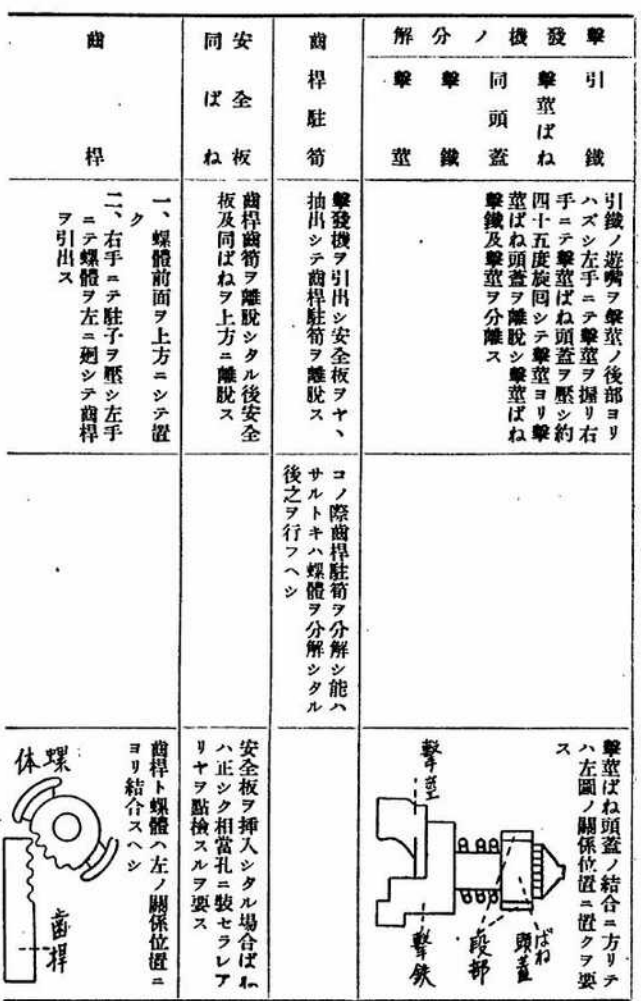 擊發機ノ分解
引鐵
擊莖ばね
同頭蓋
擊鐵
擊莖
引鐵ノ遊嘴ヲ擊莖ノ後部ヨリ
ハズシ左手ニテ擊莖ヲ握リ右
手ニテ擊莖ばね頭蓋ヲ壓シ約
四十五度旋囘シテ擊莖ヨリ擊
莖ばね頭蓋ヲ離脫シ擊莖ばね
擊鐵及擊莖ヲ分離ス
擊莖ばね頭蓋ノ結合ニ方リテ
ハ左圖ノ關係位置ニ置クヲ要
ス
擊莖
ばね
頭蓋
段部
擊鉄
齒桿駐筍
擊發機ヲ引出シ安全板ヲヤヽ
抽出シテ齒桿駐筍ヲ離脫ス
コノ際齒桿駐筍ヲ分解シ能ハ
サルトキハ螺體ヲ分解シタル
後之ヲ行フヘシ
安全板
同ばね
齒桿齒筍ヲ離脫シタル後安全
板及同ばねヲ上方ニ離脫ス
安全板ヲ挿入シタル場合ばね
ハ正シク相當孔ニ裝セラレア
リヤヲ點檢スルヲ要ス
齒桿
一、螺體前面ヲ上方ニシテ置
ク
二、右手ニテ駐子ヲ壓シ左手
ニテ螺體ヲ左ニ廻シテ齒桿
ヲ引出ス
齒桿ト螺體ハ左ノ關係位置ニ
ヨリ結合スヘシ
体螺
齒桿